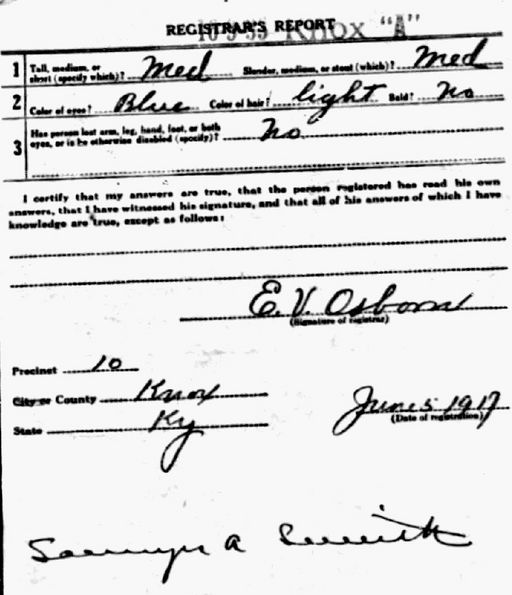 REGISTRAR'S REPORT
KNOX "A"
1 Tall, medium, or short (specify which)? Med Slender, medium, or stout (which)? Med
2 Color of eyes? Blue Color of hair? light Bald? No
3 Has person lost arm, leg, hand, foot, or both eyes, or is he otherwise disabled (specify)? No
I certify that my answers are true, that the person registered has read his own
answers, that I have witnessed his signature, and that all of his answers of which I have
knowledge are true, except as follows:
E. V. Osborne
(Signature of registrar)
Precinct 10
City or County Knox
State Ky
June 5 1917
(Date of registration)
A Smith